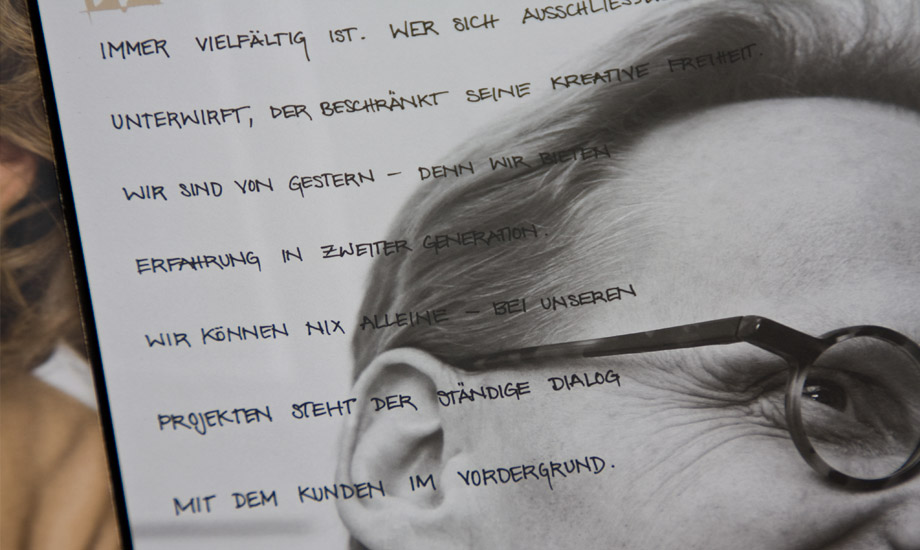 IMMER VIELFÄLTIG IST. WER SICH
UNTERWIRFT, DER BESCHRÄNKT SEINE KREATIVE FREIHEIT.
WIR SIND VON GESTERN – DENN WIR BIETEN
ERFAHRUNG IN ZWEITER GENERATION.
WIR KÖNNEN NIX ALLEINE – BEI UNSEREN
PROJEKTEN STEHT DER STÄNDIGE DIALOG
MIT DEM KUNDEN IM VORDERGRUND.